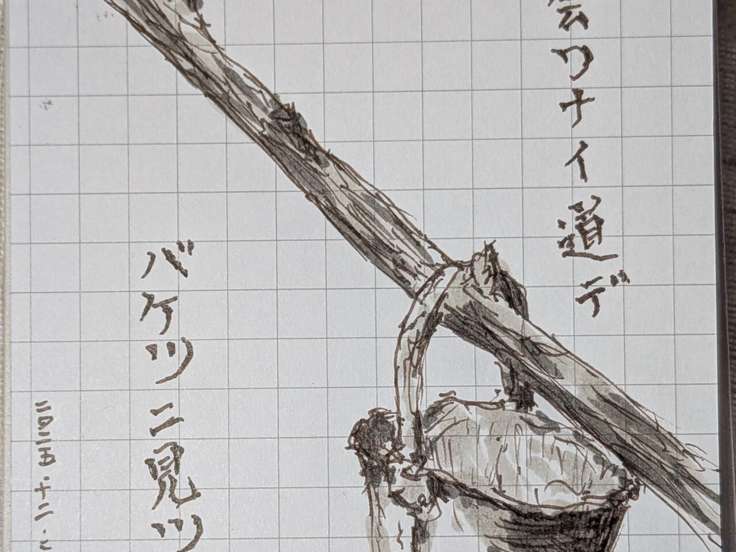 会ワナイ道デ
バケツニ見ツ
二〇二五・十二・